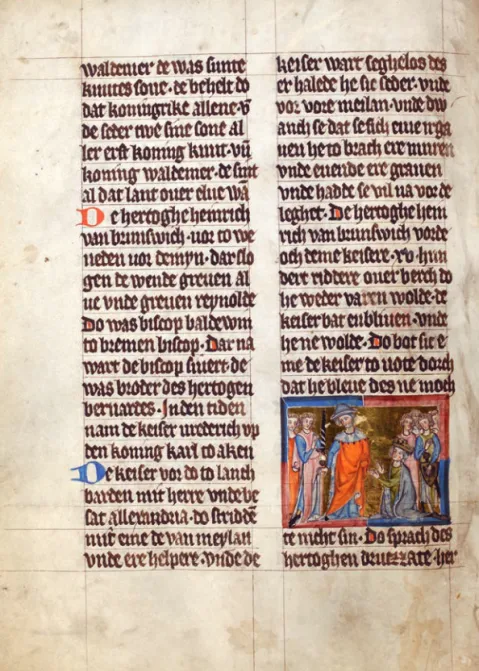 waldemer de was sunte
knutes sone · de behelt do
dat koningrike allene · vn̄
de seder twe sine sone al
ler erst koning knut · vn̄
koning waldemer · de sint
al dat lant ouer elue wā
De hertoghe heinrich
van brunswich · uor to we
neden uor demyn · dar slo
gen de wende greuen al
ue vnde greuen reynolde
Do was biscop baldewin
to bremen biscop · Dar na
wart de biscop siuert · de
was broder des hertogen
bernardes · Jn den tiden
nam de keiser urederich vp
den koning karl to aken
De keiser vor do to lanch
barden mit herre vnde be
sat allexandria · do stridde
mit eme de van meylan
vnde ere helpere · vnde de
keiser wart seghelos des
er halede he sic seder · vnde
vor vore meilan · vnde dw
anch se dat se sich eme irga
uen he to brach ere muren
vnde euende ere grauen
vnde hadde se vil na vorde
leghet · De hertoghe hein
rich van brunswich vorde
och deme keisere · xv · hun
dert riddere ouer berch do
he weder varen wolde · de
keiser bat en bliuen · vnde
he ne wolde · Do bot sic e
me de keiser to uote dorch
dat he bleue des ne moch
te nicht sin · Do sprach des
hertoghen druzzate her